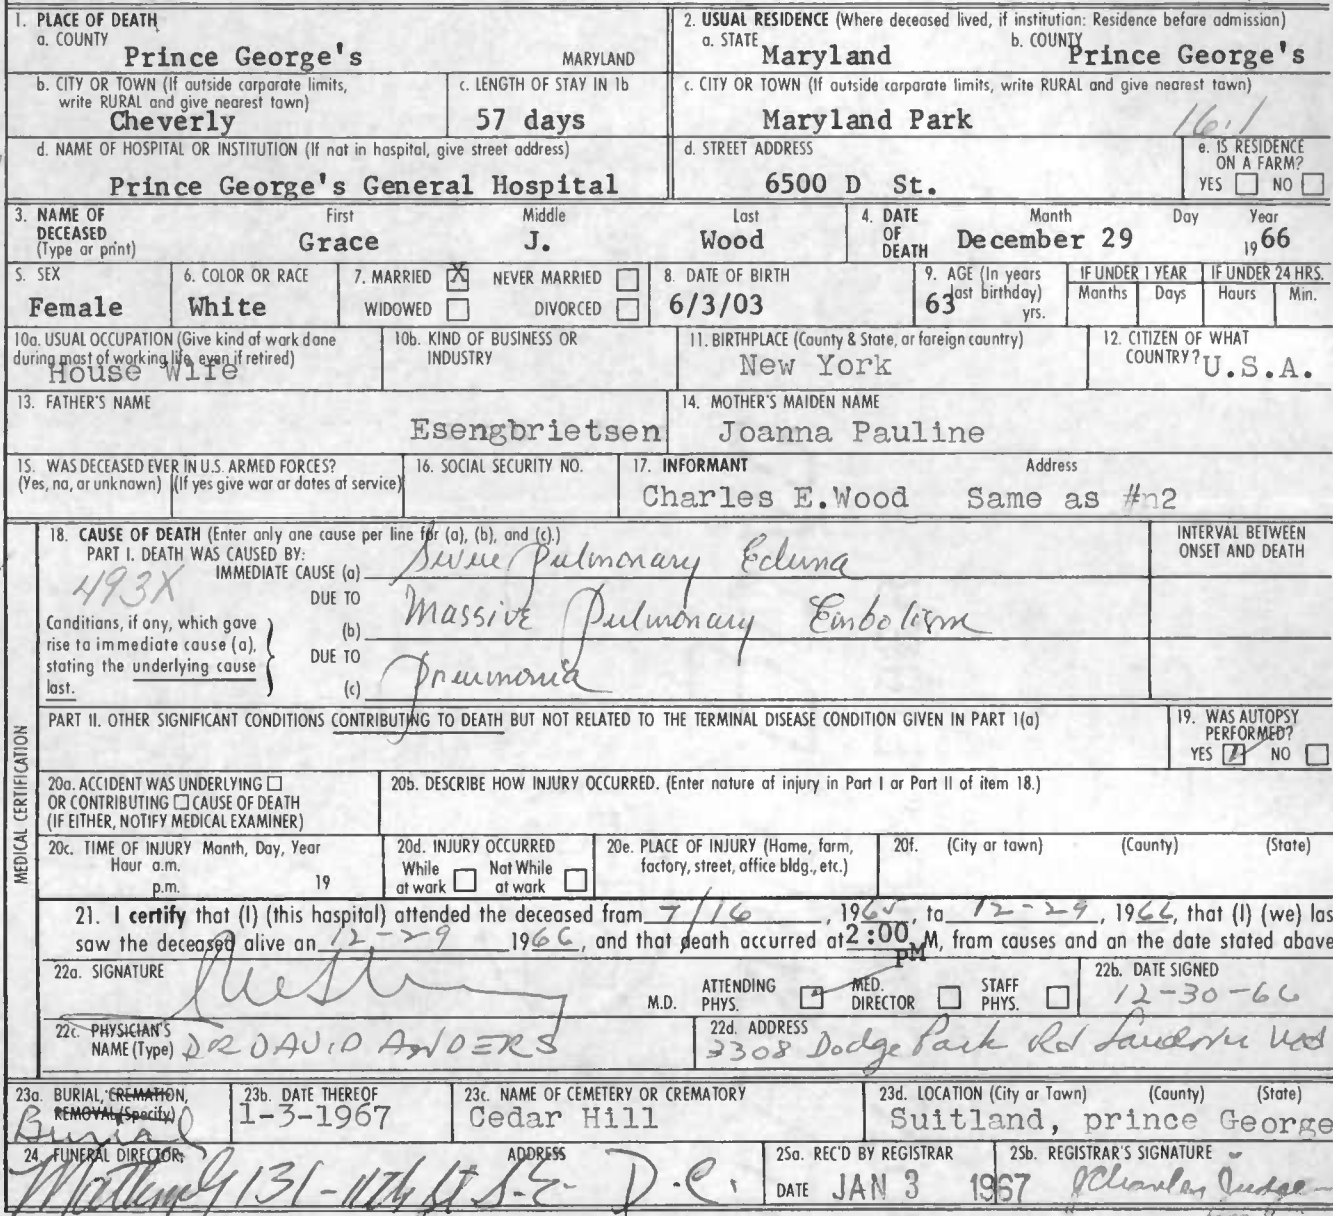 1. PLACE OF DEATH
a. COUNTY
Prince George's MARYLAND
2. USUAL RESIDENCE (Where deceased lived, if institution: Residence before admission)
a. STATE Maryland b. COUNTY Prince George's
b. CITY OR TOWN (If outside corporate limits, write RURAL and give nearest town)
Cheverly
c. LENGTH OF STAY IN 1b
57 days
c. CITY OR TOWN (If outside corporate limits, write RURAL and give nearest town)
Maryland Park
16.1
d. NAME OF HOSPITAL OR INSTITUTION (If not in hospital, give street address)
Prince George's General Hospital
d. STREET ADDRESS
6500 D St.
e. IS RESIDENCE ON A FARM?
YES NO
3. NAME OF DECEASED (Type or print)
First Middle Last
Grace J. Wood
4. DATE OF DEATH
Month Day Year
December 29 1966
5. SEX
Female
6. COLOR OR RACE
White
7. MARRIED X NEVER MARRIED
WIDOWED DIVORCED
8. DATE OF BIRTH
6/3/03
9. AGE (In years last birthday)
63 yrs.
IF UNDER 1 YEAR
Months Days
IF UNDER 24 HRS.
Hours Min.
10a. USUAL OCCUPATION (Give kind of work done during most of working life, even if retired)
House Wife
10b. KIND OF BUSINESS OR INDUSTRY
11. BIRTHPLACE (County & State, or foreign country)
New York
12. CITIZEN OF WHAT COUNTRY?
U.S.A.
13. FATHER'S NAME
Esengbrietsen
14. MOTHER'S MAIDEN NAME
Joanna Pauline
15. WAS DECEASED EVER IN U.S. ARMED FORCES?
(Yes, no, or unknown) (If yes give war or dates of service)
16. SOCIAL SECURITY NO.
17. INFORMANT Address
Charles E.Wood Same as #n2
MEDICAL CERTIFICATION
18. CAUSE OF DEATH (Enter only one cause per line for (a), (b), and (c).)
PART I. DEATH WAS CAUSED BY:
IMMEDIATE CAUSE (a) Severe Pulmonary Edema
INTERVAL BETWEEN ONSET AND DEATH
493X
Conditions, if any, which gave rise to immediate cause (a), stating the underlying cause last.
DUE TO
(b) Massive Pulmonary Embolism
DUE TO
(c) Pneumonia
PART II. OTHER SIGNIFICANT CONDITIONS CONTRIBUTING TO DEATH BUT NOT RELATED TO THE TERMINAL DISEASE CONDITION GIVEN IN PART I(a)
19. WAS AUTOPSY PERFORMED?
YES NO
20a. ACCIDENT WAS UNDERLYING
OR CONTRIBUTING CAUSE OF DEATH
(IF EITHER, NOTIFY MEDICAL EXAMINER)
20b. DESCRIBE HOW INJURY OCCURRED. (Enter nature of injury in Part I or Part II of item 18.)
20c. TIME OF INJURY Month, Day, Year
Hour a.m.
p.m. 19
20d. INJURY OCCURRED
While at work Not While at work
20e. PLACE OF INJURY (Home, farm, factory, street, office bldg., etc.)
20f. (City or town) (County) (State)
21. I certify that (I) (this hospital) attended the deceased from 7/16, 1965, to 12-29, 1966, that (I) (we) las
saw the deceased alive on 12-29 1966, and that death occurred at 2:00 PM M, from causes and on the date stated above
22a. SIGNATURE
M.D. ATTENDING PHYS. MED. DIRECTOR STAFF PHYS.
22b. DATE SIGNED
12-30-66
22c. PHYSICIAN'S NAME (Type) DR DAVID ANDERS
22d. ADDRESS
3308 Dodge Park Rd Landover Md
23a. BURIAL, CREMATION, REMOVAL (Specify)
Burial
23b. DATE THEREOF
1-3-1967
23c. NAME OF CEMETERY OR CREMATORY
Cedar Hill
23d. LOCATION (City or Town) (County) (State)
Suitland, prince George
24. FUNERAL DIRECTOR ADDRESS
Mattingly 131-11th St S.E. D.C.
25a. REC'D BY REGISTRAR
DATE JAN 3 1967
25b. REGISTRAR'S SIGNATURE
Charles Judge